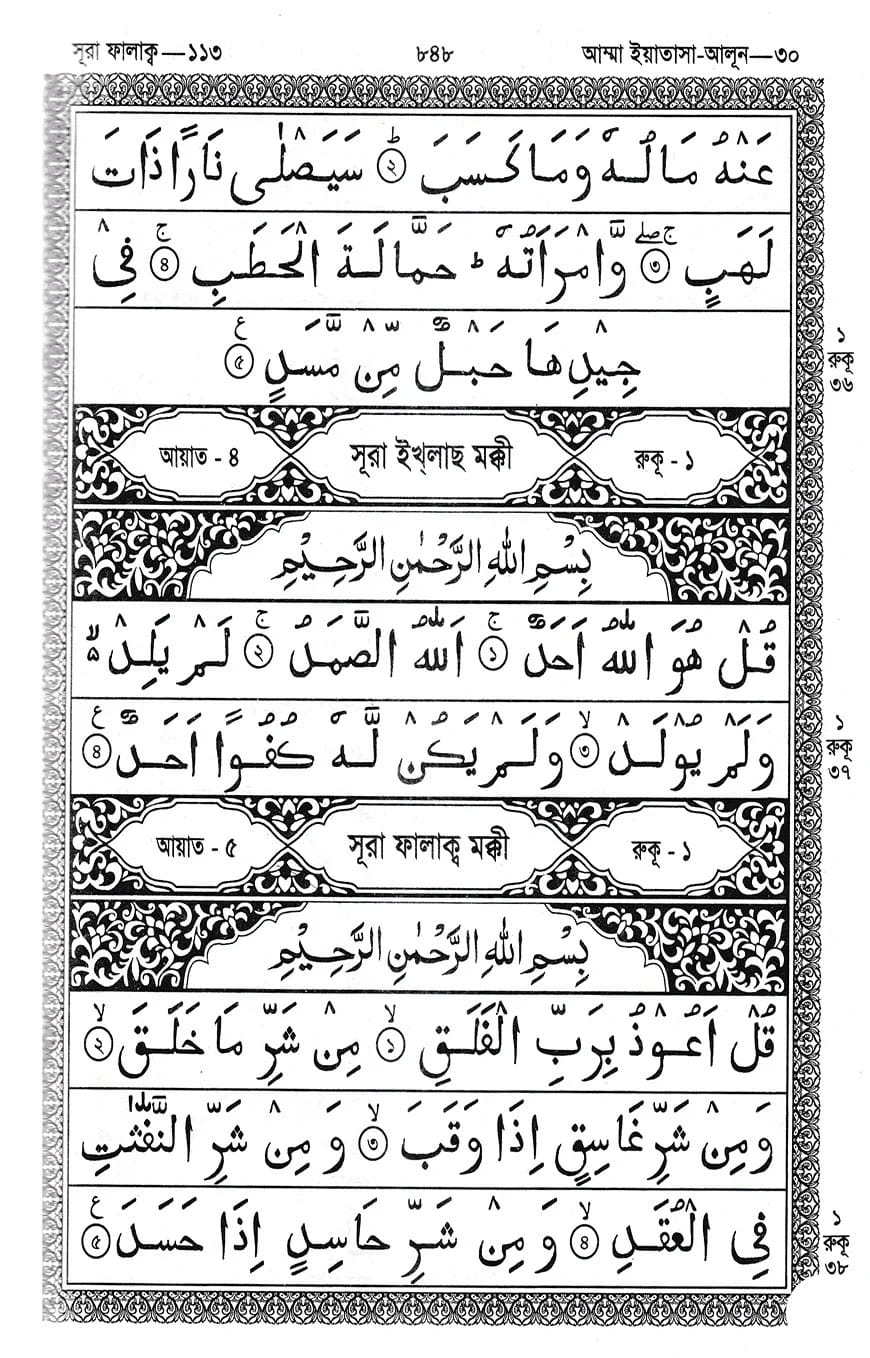 সূরা ফালাক্ব—১১৩ ৮৪৮ আম্মা ইয়াতাসা-আলূন—৩০
عَنْهُ مَالُهٗ وَمَا كَسَبَ ؕ ﴿২﴾ سَيَصْلٰى نَارًا ذَاتَ
لَهَبٍ ۚۖ ﴿৩﴾ وَّامْرَاَتُهٗ ؕ حَمَّالَةَ الْحَطَبِ ۚ ﴿৪﴾ فِىْ
جِيْدِهَا حَبْلٌ مِّنْ مَّسَدٍ ﴿৫﴾ ع
১
রুকু
৩৬
আয়াত - ৪ সূরা ইখ্লাছ মক্কী রুকু - ১
بِسْمِ اللّٰهِ الرَّحْمٰنِ الرَّحِيْمِ
قُلْ هُوَ اللّٰهُ اَحَدٌ ۚ ﴿১﴾ اَللّٰهُ الصَّمَدُ ۚ ﴿২﴾ لَمْ يَلِدْ ۙ۬
وَلَمْ يُوْلَدْ ۙ ﴿৩﴾ وَلَمْ يَكُنْ لَّهٗ كُفُوًا اَحَدٌ ﴿৪﴾ ع
১
রুকু
৩৭
আয়াত - ৫ সূরা ফালাক্ব মক্কী রুকু - ১
بِسْمِ اللّٰهِ الرَّحْمٰنِ الرَّحِيْمِ
قُلْ اَعُوْذُ بِرَبِّ الْفَلَقِ ۙ ﴿১﴾ مِنْ شَرِّ مَا خَلَقَ ۙ ﴿২﴾
وَمِنْ شَرِّ غَاسِقٍ اِذَا وَقَبَ ۙ ﴿৩﴾ وَ مِنْ شَرِّ النَّفّٰثٰتِ
فِى الْعُقَدِ ۙ ﴿৪﴾ وَ مِنْ شَرِّ حَاسِدٍ اِذَا حَسَدَ ﴿৫﴾ ع
১
রুকু
৩৮